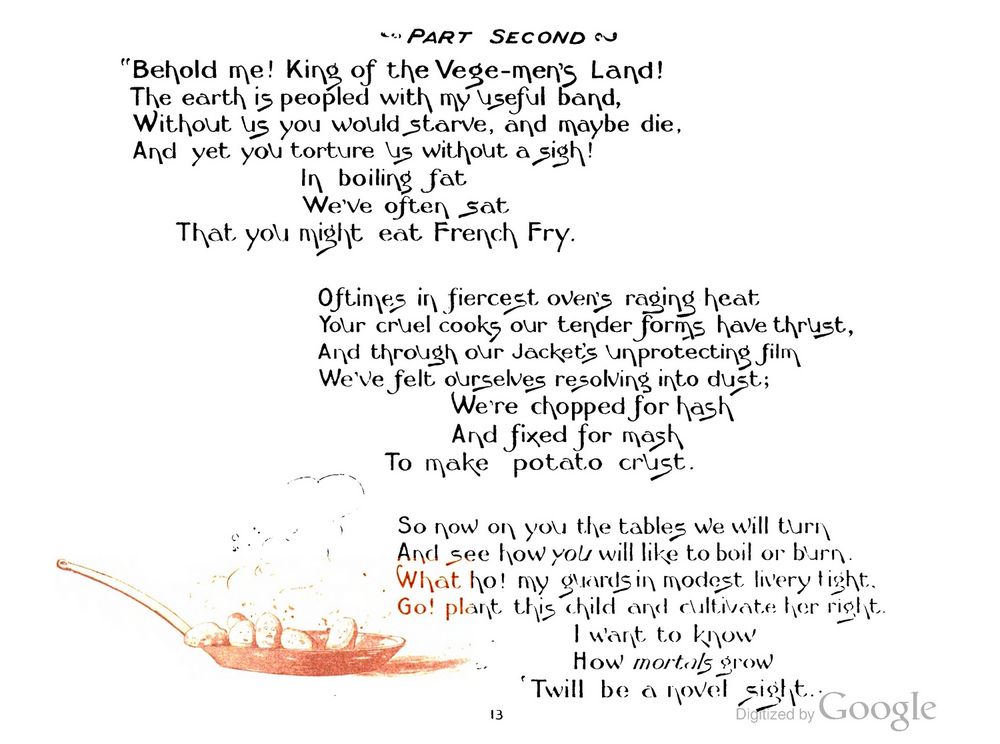 PART SECOND
"Behold me! King of the Vege-men's Land!
The earth is peopled with my useful band,
Without us you would starve, and maybe die,
And yet you torture us without a sigh!
In boiling fat
We've often sat
That you might eat French Fry.
Oftimes in fiercest oven's raging heat
Your cruel cooks our tender forms have thrust,
And through our Jacket's unprotecting film
We've felt ourselves resolving into dust;
We're chopped for hash
And fixed for mash
To make potato crust.
So now on you the tables we will turn
And see how you will like to boil or burn.
What ho! my guards in modest livery tight,
Go! plant this child and cultivate her right.
I want to know
How mortals grow
'Twill be a novel sight..
13
Digitized by Google